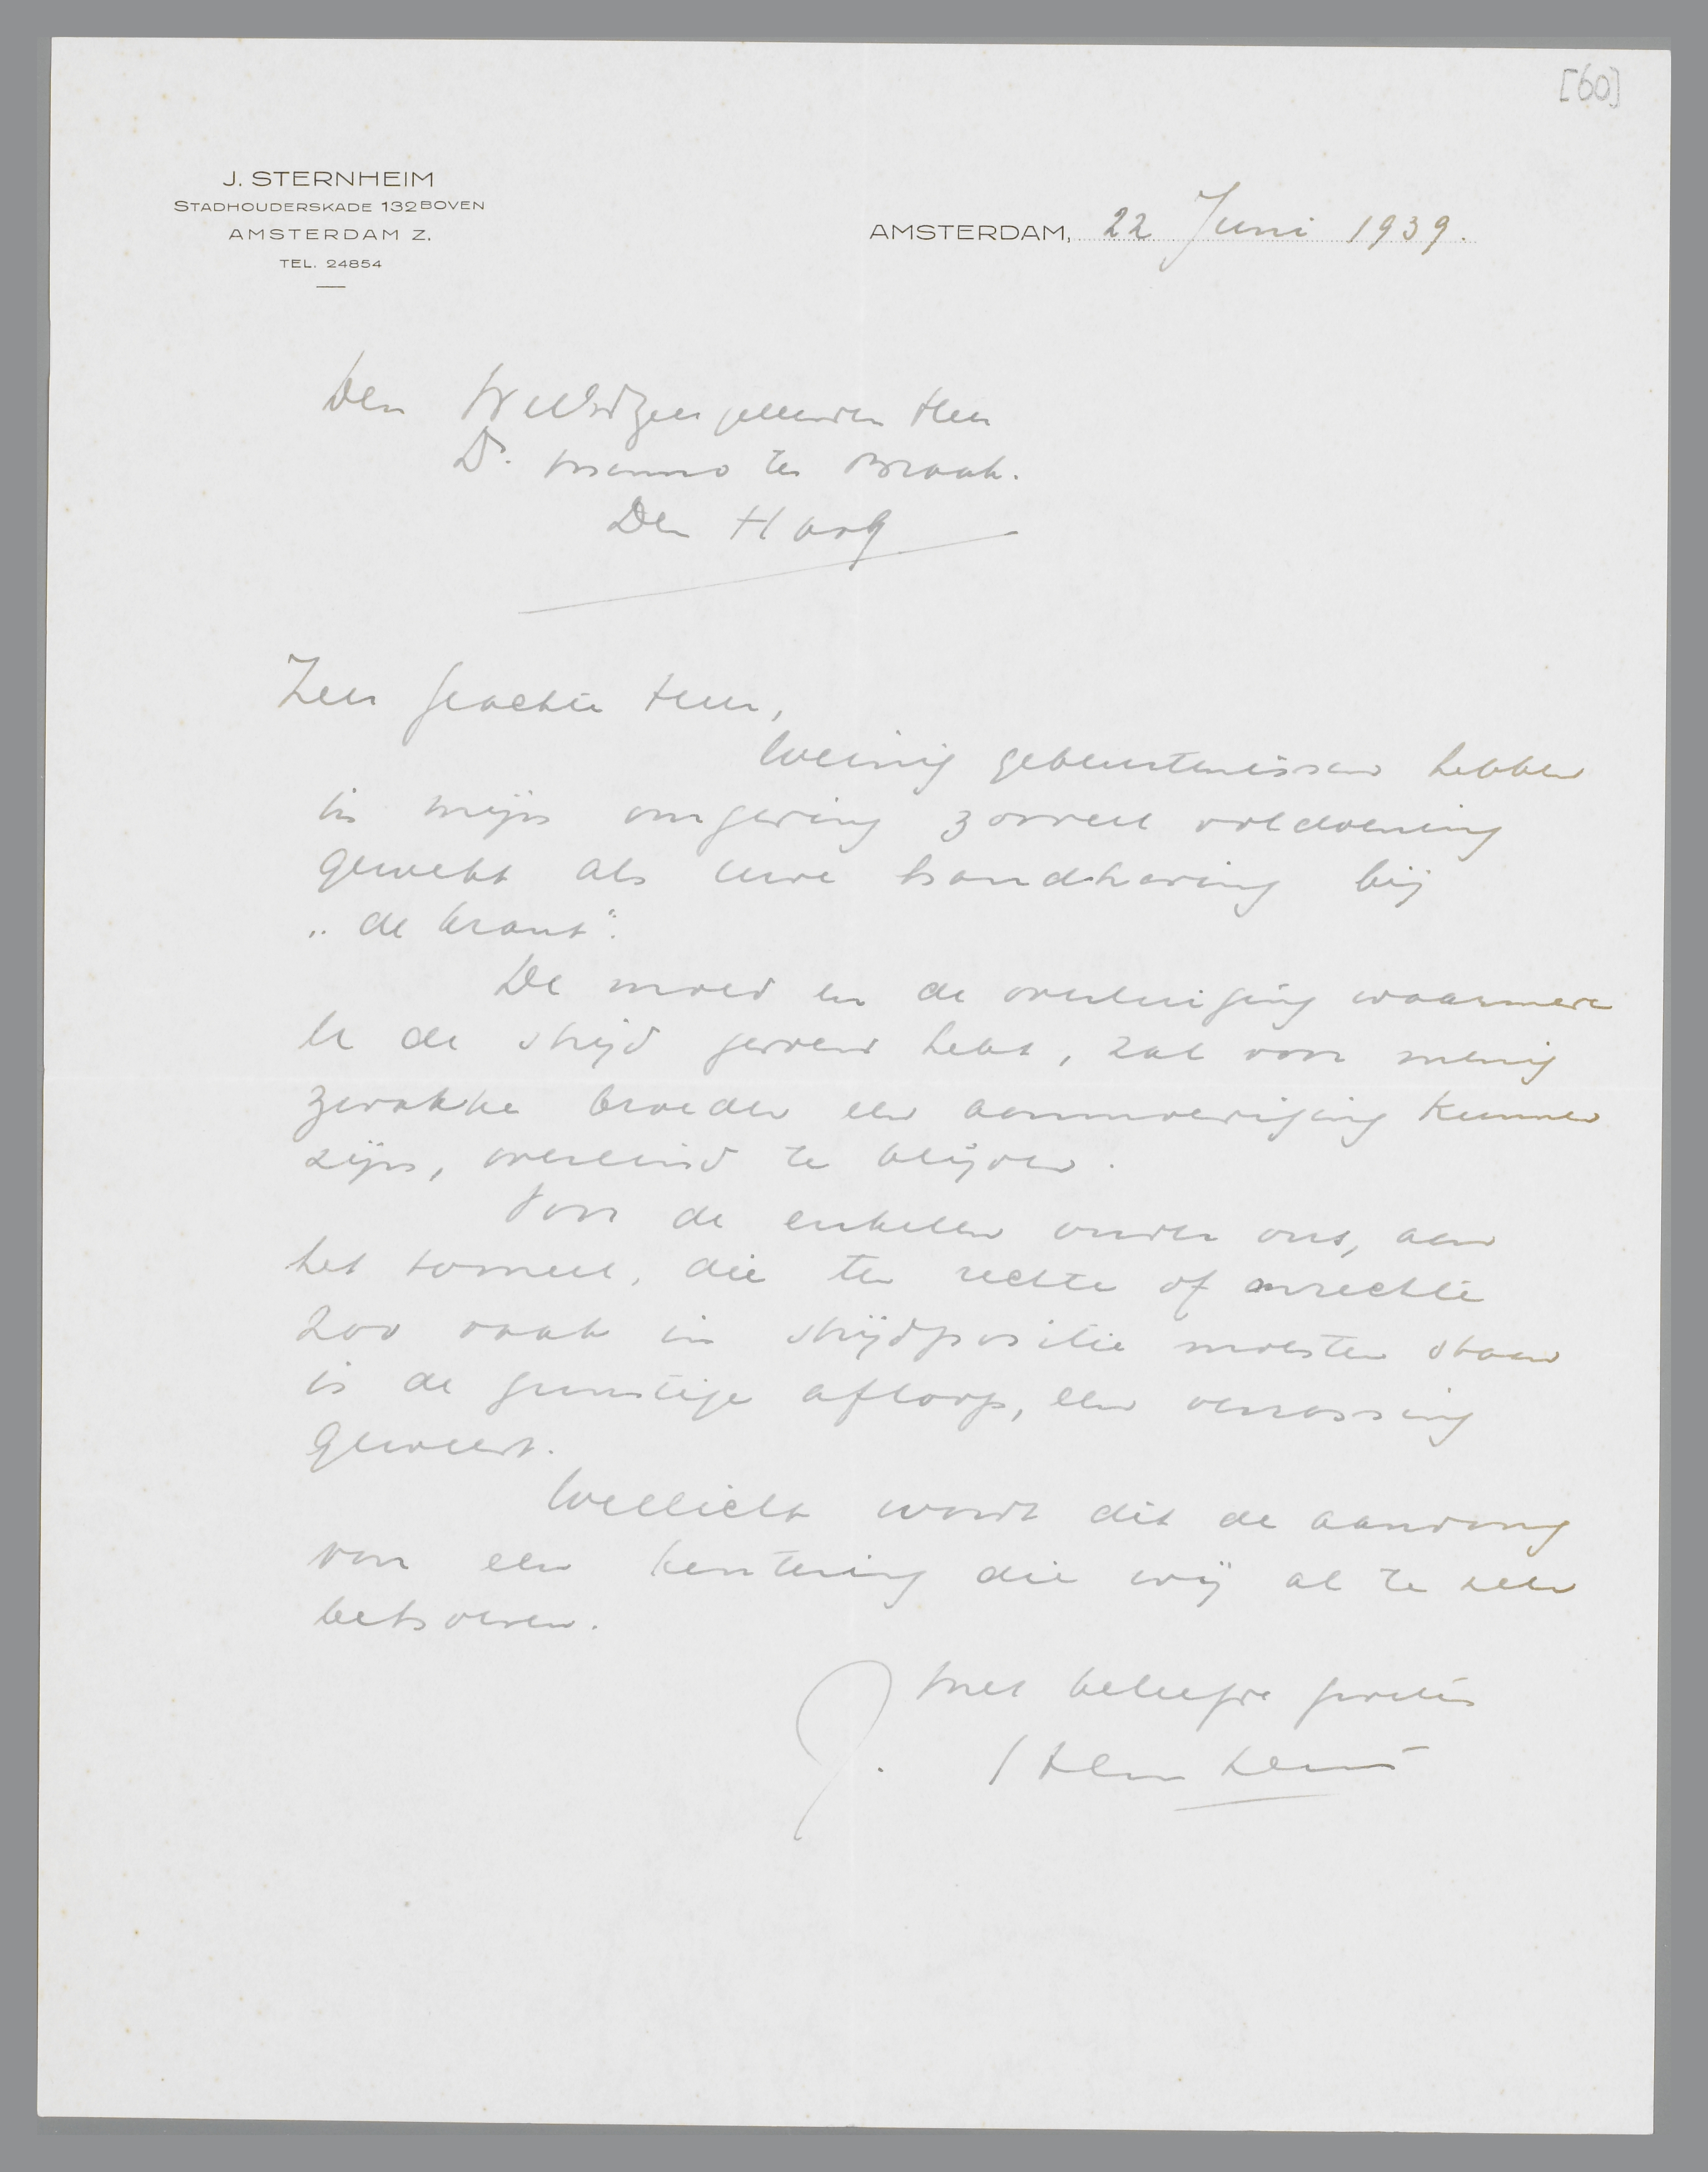 [60]
J. STERNHEIM
STADHOUDERSKADE 132 BOVEN
AMSTERDAM Z.
TEL. 24854
AMSTERDAM, 22 Juni 1939.
Den WelEdZeergeleerden Heer
Dr. Menno ter Braak.
Den Haag
Zeer geachte Heer,
Weinig gebeurtenissen hebben
in mijn omgeving zooveel voldoening
gewekt als uwe handhaving bij
„de krant".
De moed en de overtuiging waarmede
U de strijd gevoerd hebt, zal voor menig
zwakke broeder een aanmoediging kunnen
zijn, overeind te blijven.
Voor de enkelen onder ons, aan
het tooneel, die ten rechte of onrechte
zoo vaak in strijdpositie moesten staan
is de gunstige afloop, een verrassing
geweest.
Wellicht wordt dit de aanvang
van een kentering die wij al te zeer
behoeven.
Met beleefde groeten
J. Sternheim